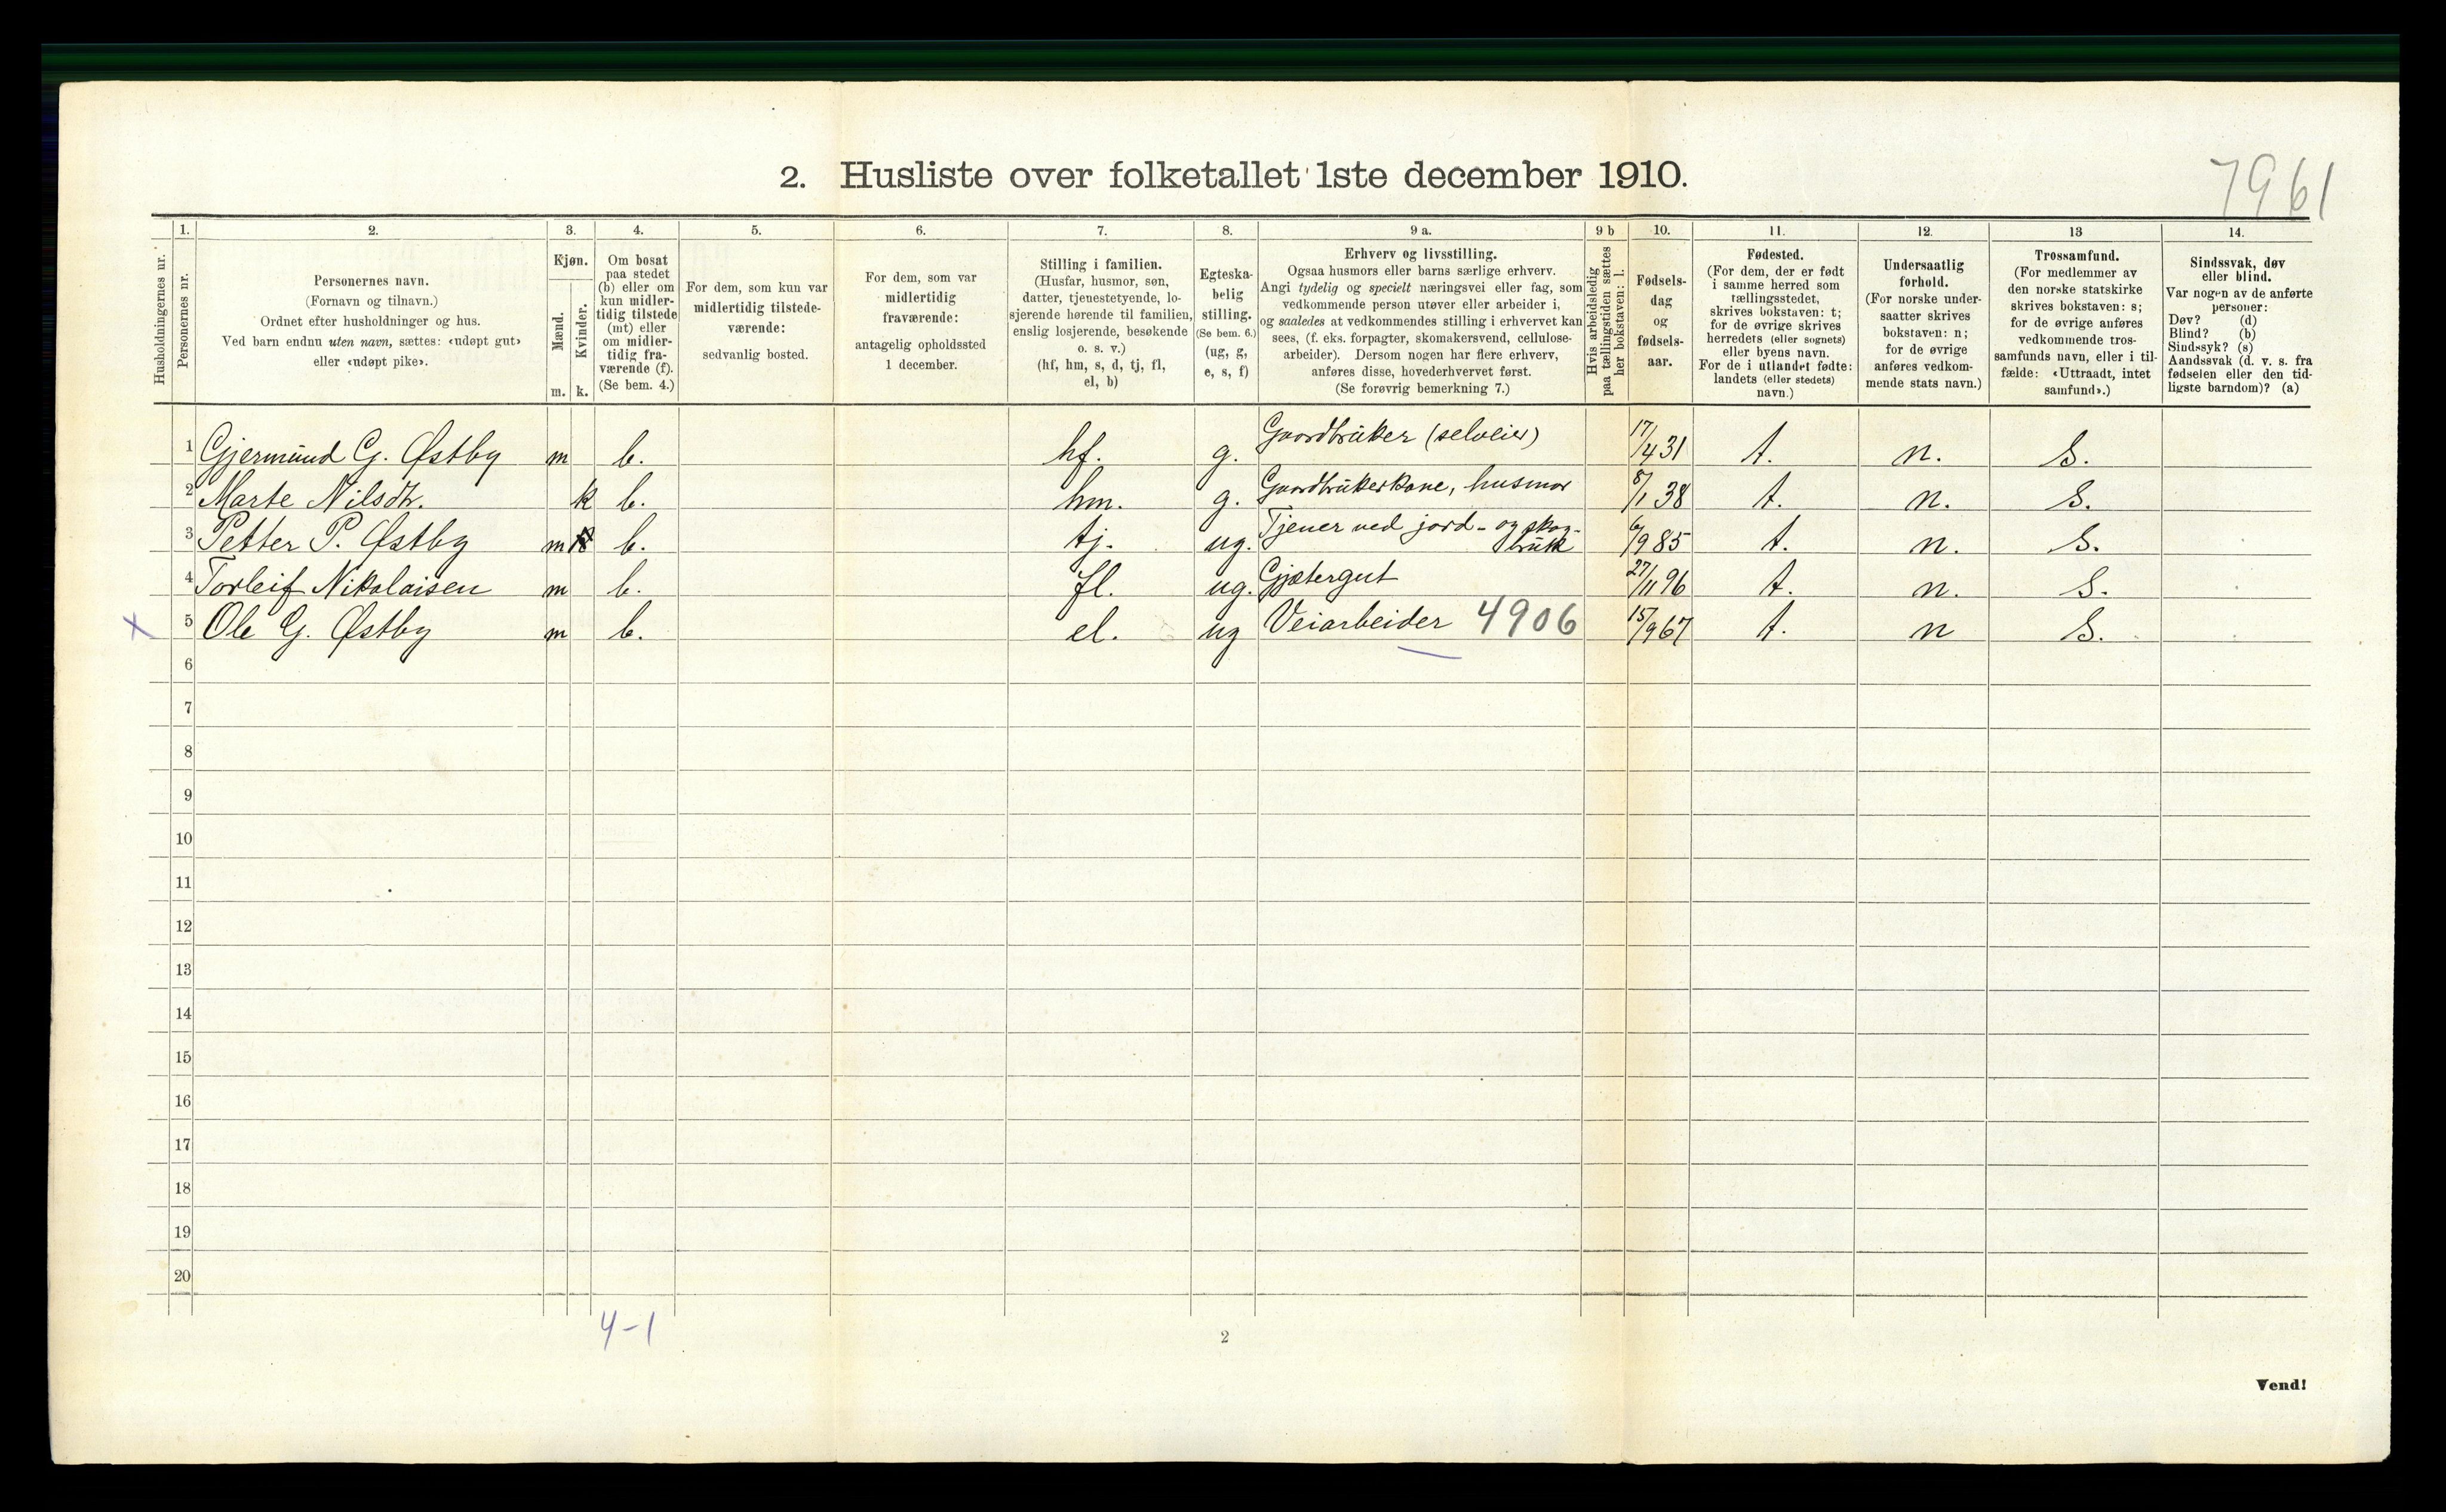 2. Husliste over folketallet 1ste december 1910.
7961
Husholdningernes nr.
1.
Personernes nr.
2.
Personernes navn.
(Fornavn og tilnavn.)
Ordnet efter husholdninger og hus.
Ved barn endnu uten navn, sættes: «udøpt gut»
eller «udøpt pike».
3.
Kjøn.
Mænd.
Kvinder.
m. k.
4.
Om bosat
paa stedet
(b) eller om
kun midler-
tidig tilstede
(mt) eller
om midler-
tidig fra-
værende (f).
(Se bem. 4.)
5.
For dem, som kun var
midlertidig tilstede-
værende:
sedvanlig bosted.
6.
For dem, som var
midlertidig
fraværende:
antagelig opholdssted
1 december.
7.
Stilling i familien.
(Husfar, husmor, søn,
datter, tjenestetyende, lo-
sjerende hørende til familien,
enslig losjerende, besøkende
o. s. v.)
(hf, hm, s, d, tj, fl,
el, b)
8.
Egteska-
belig
stilling.
(Se bem. 6.)
(ug, g,
e, s, f)
9 a.
Erhverv og livsstilling.
Ogsaa husmors eller barns særlige erhverv.
Angi tydelig og specielt næringsvei eller fag, som
vedkommende person utøver eller arbeider i,
og saaledes at vedkommendes stilling i erhvervet kan
sees, (f. eks. forpagter, skomakersvend, cellulose-
arbeider). Dersom nogen har flere erhverv,
anføres disse, hovederhvervet først.
(Se forøvrig bemerkning 7.)
9 b
Hvis arbeidsledig
paa tællingstiden sættes
her bokstaven: l.
10.
Fødsels-
dag
og
fødsels-
aar.
11.
Fødested.
(For dem, der er født
i samme herred som
tællingsstedet,
skrives bokstaven: t;
for de øvrige skrives
herredets (eller sognets)
eller byens navn.
For de i utlandet fødte:
landets (eller stedets)
navn.)
12.
Undersaatlig
forhold.
(For norske under-
saatter skrives
bokstaven: n;
for de øvrige
anføres vedkom-
mende stats navn.)
13
Trossamfund.
(For medlemmer av
den norske statskirke
skrives bokstaven: s;
for de øvrige anføres
vedkommende tros-
samfunds navn, eller i til-
fælde: «Uttraadt, intet
samfund».)
14.
Sindssvak, døv
eller blind.
Var nogen av de anførte
personer:
Døv? (d)
Blind? (b)
Sindssyk? (s)
Aandssvak (d. v. s. fra
fødselen eller den tid-
ligste barndom)? (a)
1 Gjermund G. Østby m b. hf. g. Gaardbruker (selveier) 17/4 31 t. n. S.
2 Marte Nilsdtr. k b. hm. g. Gaardbrukerkone, husmor 8/1 38 t. n. S.
3 Petter P. Østby m b. tj. ug. Tjener ved jord- og skog-
bruk 6/9 85 t. n. S.
4 Torleif Nikolaisen m b. fl. ug. Gjætergut 27/11 96 t. n. S.
x 5 Ole G. Østby m b. el. ug Veiarbeider 4906 15/9 67 t. n S.
6
7
8
9
10
11
12
13
14
15
16
17
18
19
20
4-1
2
Vend!